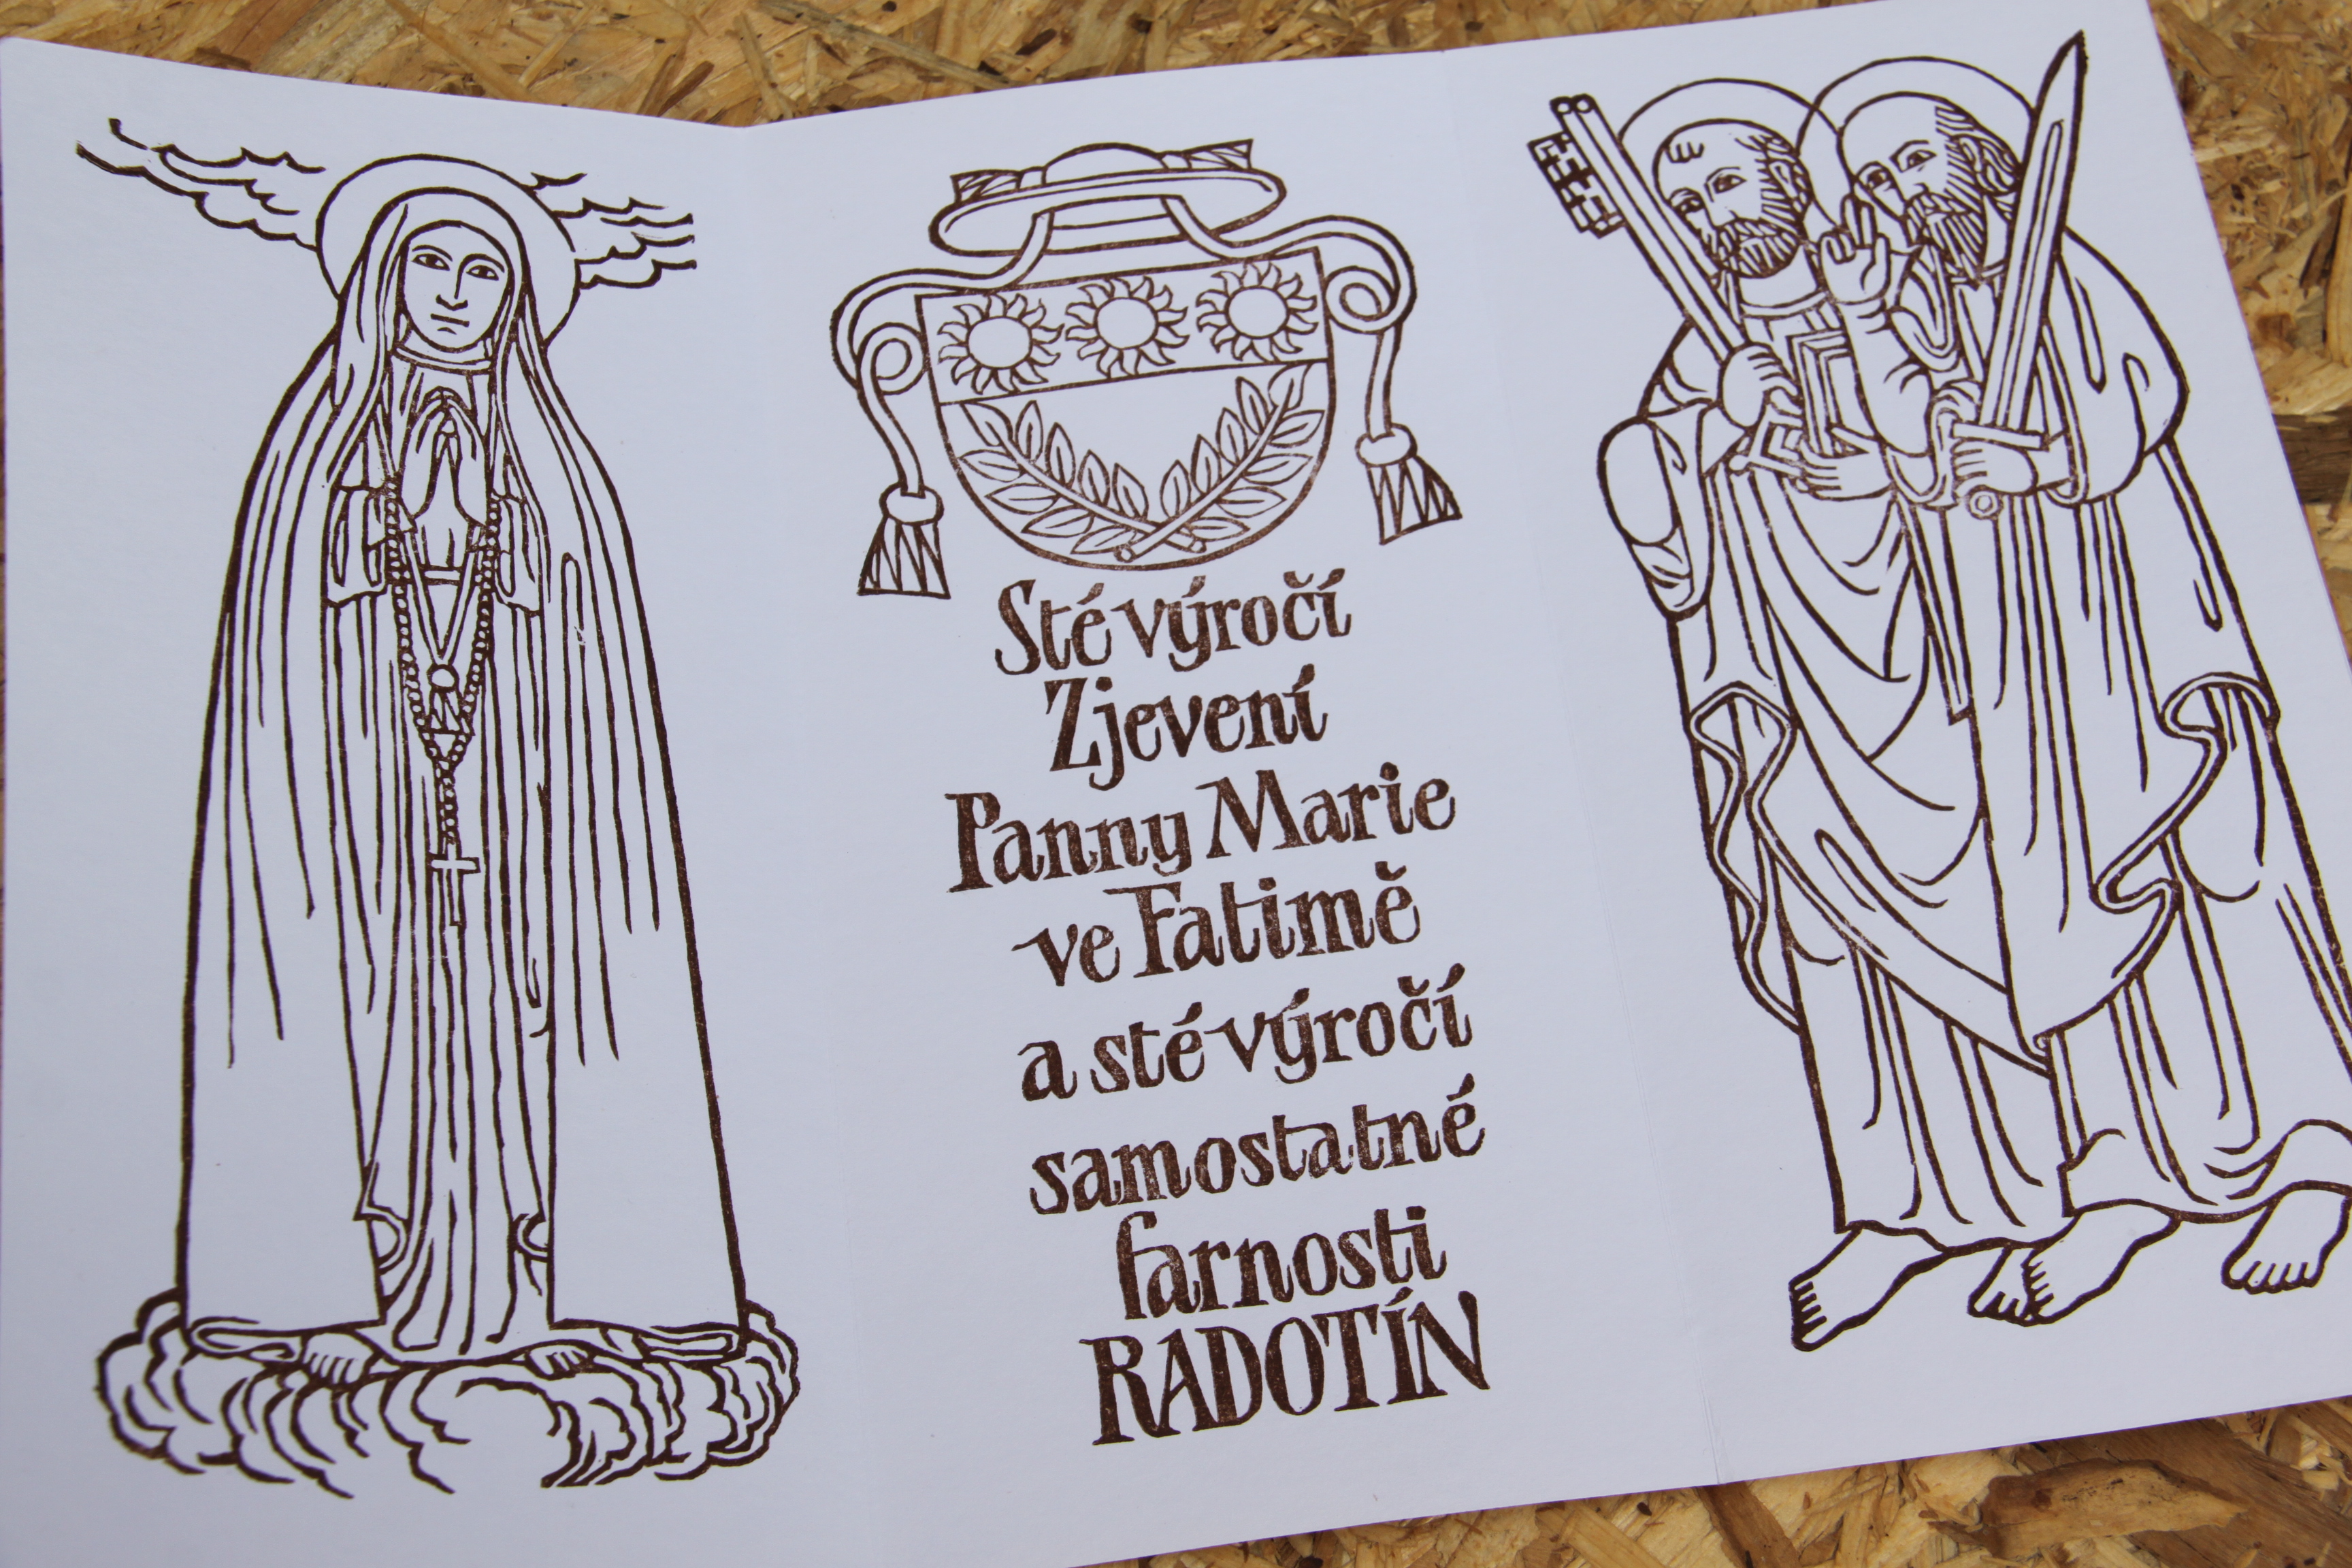 Sté výročí
Zjevení
Panny Marie
ve Fatimě
a sté výročí
samostatné
farnosti
RADOTÍN